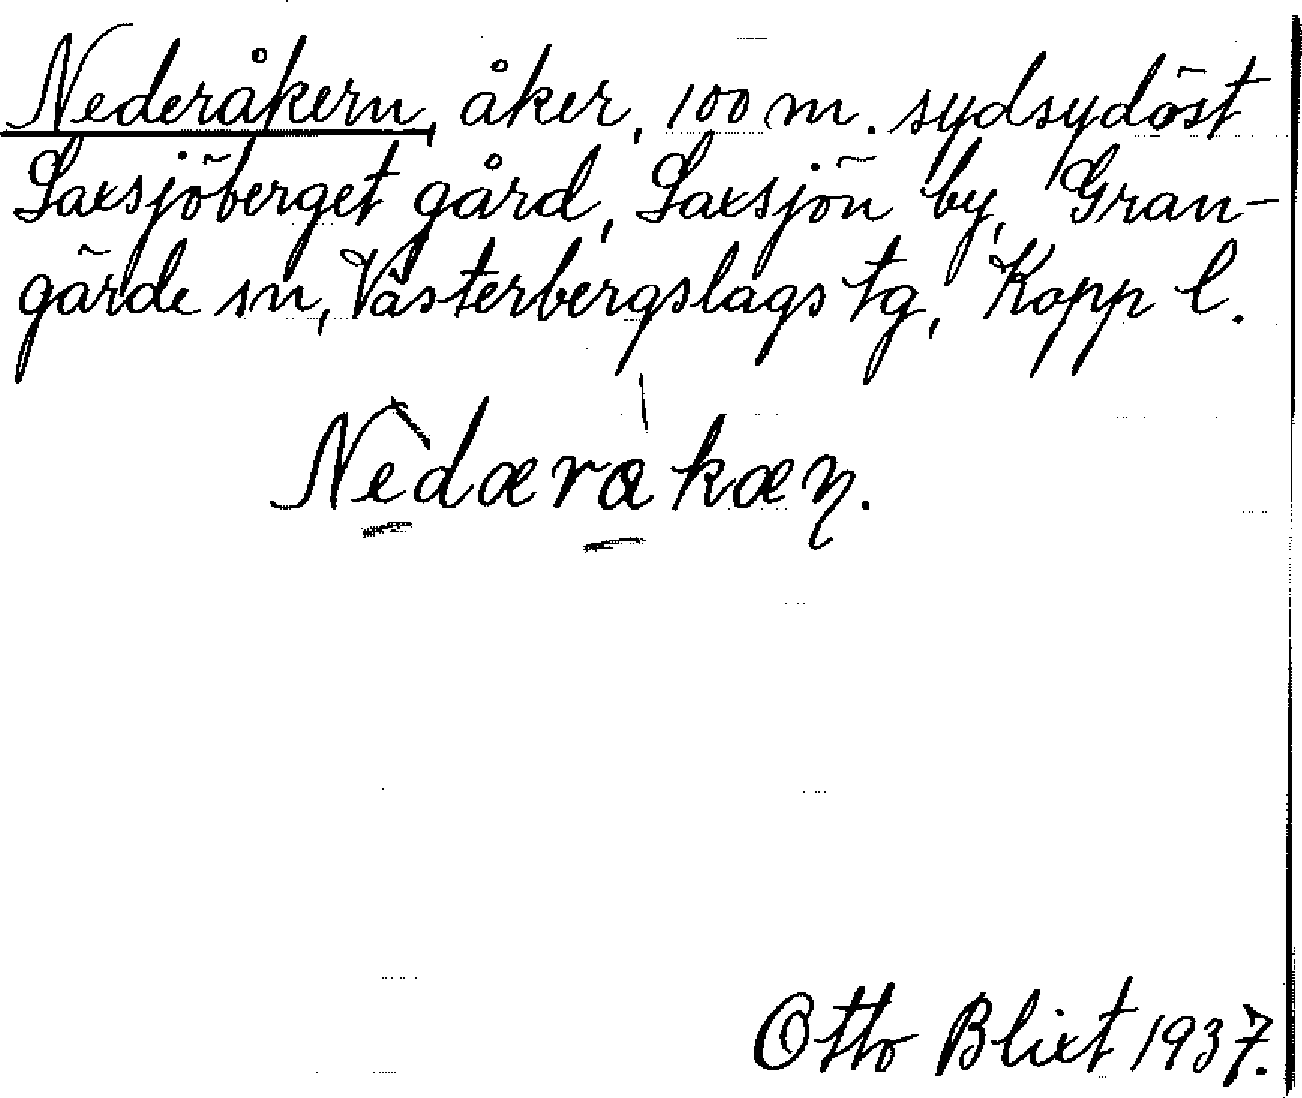 Nederåkern, åker, 100 m. sydsydöst
Saxsjöberget gård, Saxsjön by, Gran-
gärde sn, Västerbergslags tg, Kopp l.
Nèdærakæn.
Otto Blixt 1937.